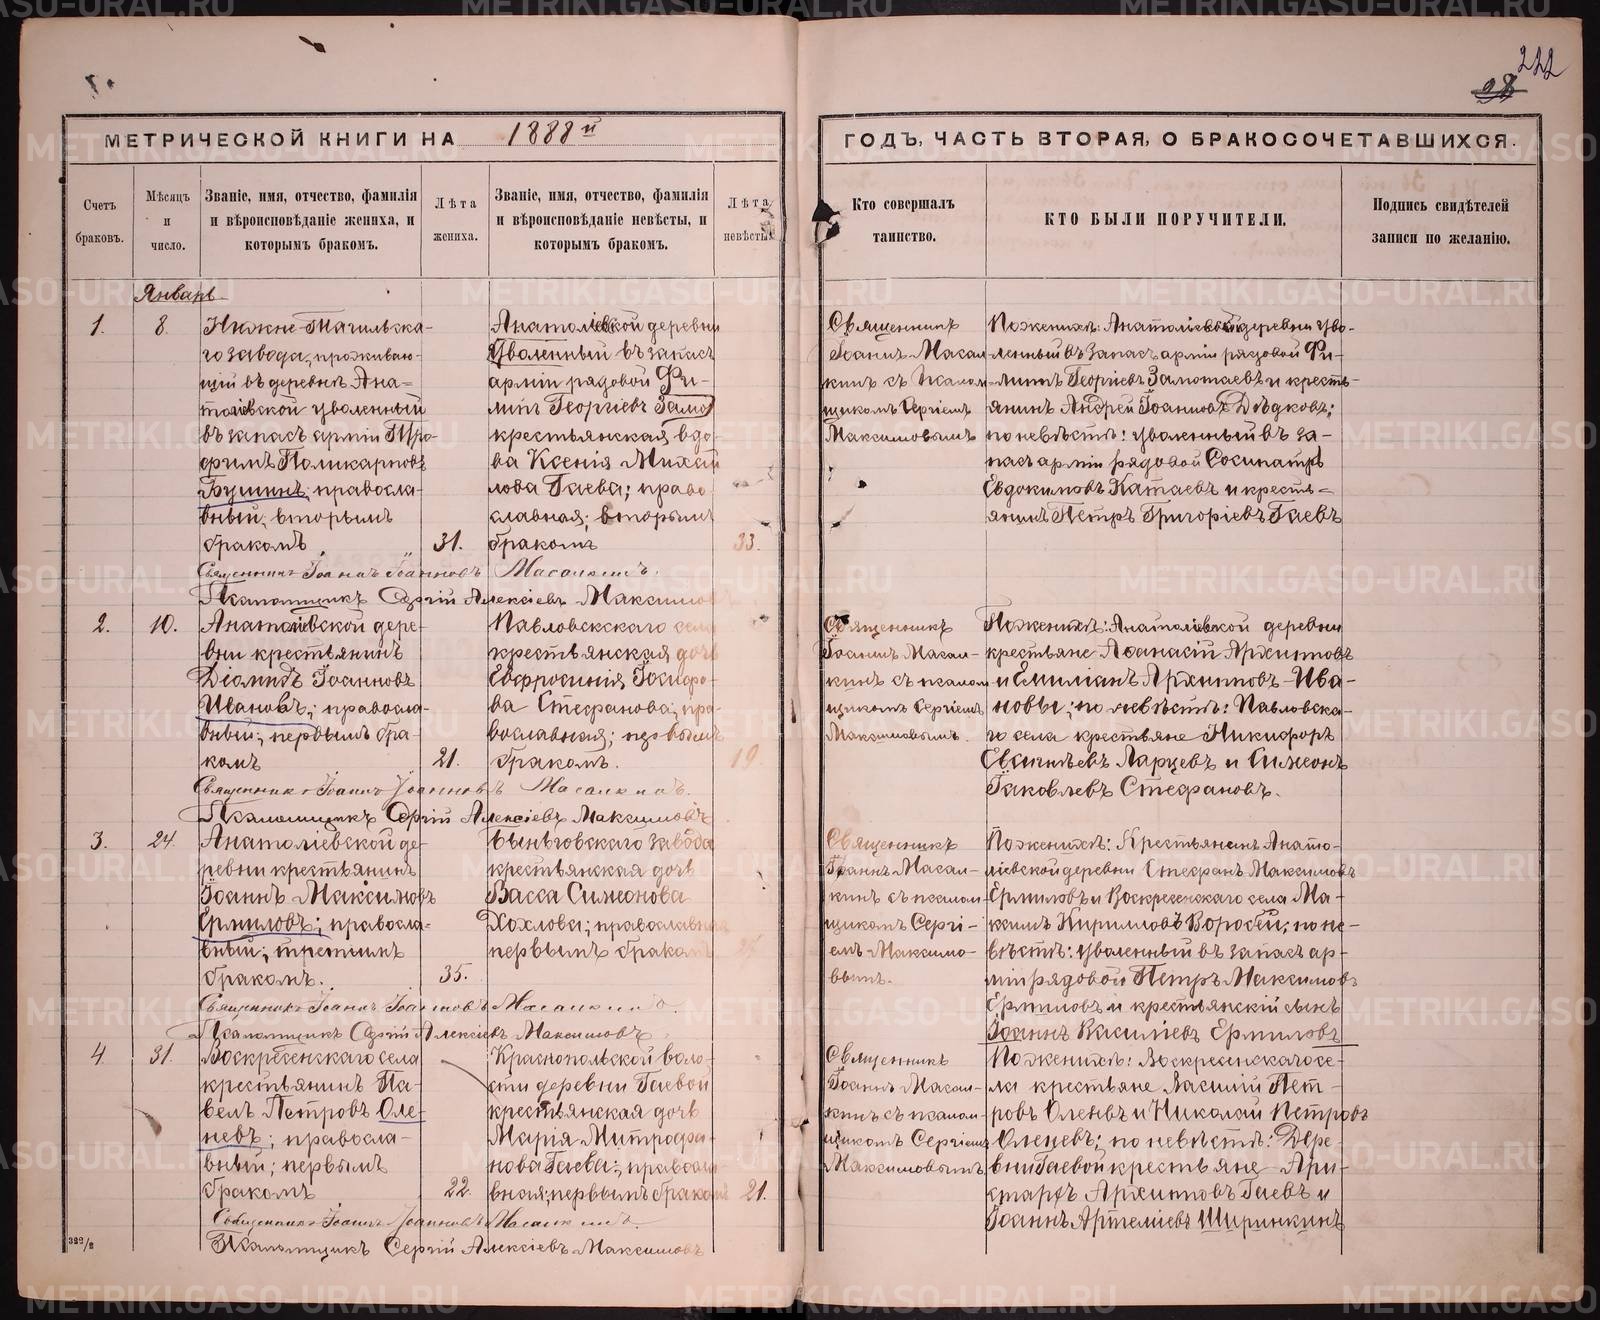 222
28
МЕТРИЧЕСКОЙ КНИГИ НА 1888й
ГОДЪ, ЧАСТЬ ВТОРАЯ, О БРАКОСОЧЕТАВШИХСЯ.
Счетъ браковъ.
Мѣсяцъ и число.
Званіе, имя, отчество, фамилія и вѣроисповѣданіе жениха, и которымъ бракомъ.
Лѣта жениха.
Званіе, имя, отчество, фамилія и вѣроисповѣданіе невѣсты, и которымъ бракомъ.
Лѣта невѣсты.
Кто совершалъ таинство.
КТО БЫЛИ ПОРУЧИТЕЛИ.
Подпись свидѣтелей записи по желанію.
Январь
1.
8.
Нижне-Тагильска-
го завода, проживаю-
щій въ деревнѣ Ана-
толіевской уволенный
въ запасъ арміи Тро-
фимъ Поликарповъ
православ-
ный; вторымъ
бракомъ
31.
Анатоліевской деревни
Уволенный въ запасъ
арміи рядовой Фи-
липъ Георгіевъ
крестьянская вдо-
ва Ксенія Михаи
лова Гаева; право
славная; вторымъ
бракомъ
33.
Священникъ
Іоаннъ Масал
кинъ съ псалом
щикомъ Сергіемъ
Максимовымъ
По женихѣ: Анатоліевской деревни уво-
ленный въ запасъ арміи рядовой Фи-
липъ Георгіевъ Замотаевъ и кресть-
янинъ Андрей Іоанновъ Дѣдковъ;
по невѣстѣ: уволенный въ за-
пасъ арміи рядовой Сосипатръ
Евдокимовъ Катаевъ и кресть-
янинъ Петръ Григоріевъ Гаевъ
Священникъ Іоаннъ Іоанновъ Масалкинъ.
Псаломщикъ Сергій Алексіевъ Максимовъ
2.
10.
Анатоліевской дере-
вни крестьянинъ
Діомидъ Іоанновъ
Ивановъ; правосла-
вный; первымъ бра-
комъ
21.
Павловскаго села
крестьянская дочь
Евфросинія
ва Стефанова; пра-
вославная; первымъ
бракомъ.
19.
Священникъ
Іоаннъ Масал-
кинъ съ псалом
щикомъ Сергіемъ
Максимовымъ.
По женихѣ: Анатоліевской деревни
крестьяне Аѳанасій Архиповъ
и Емиліанъ Архиповъ Ива-
новы; по невѣстѣ: Павловска-
го села крестьяне Никифоръ
Евсигнѣевъ Ларцевъ и Симеонъ
Іаковлевъ Стефановъ.
Священникъ Іоаннъ Іоанновъ Масалкинъ.
Псаломщикъ Сергій Алексіевъ Максимовъ
3.
24.
Анатоліевской де-
ревни крестьянинъ
Іоаннъ Максимовъ
Ермиловъ; правосла-
вный; третьимъ
бракомъ.
35.
Быньговскаго завода
крестьянская дочь
Васса Симеонова
Хохлова; православная
первымъ бракомъ
Священникъ
Іоаннъ Масал-
кинъ съ псалом
щикомъ Сергі-
емъ Максимо-
вымъ.
По женихѣ: Крестьянинъ Анато-
ліевской деревни Стефанъ Максимовъ
Ермиловъ и Воскресенскаго села Ма-
ксимъ Кирилловъ Воробей; по не-
вѣстѣ: уволенный въ запасъ ар-
міи рядовой Петръ Максимовъ
Ермиловъ и крестьянскій сынъ
Іоаннъ Василіевъ Ермиловъ
Священникъ Іоаннъ Іоанновъ Масалкинъ.
Псаломщикъ Сергій Алексіевъ Максимовъ
4
31.
Воскресенскаго села
крестьянинъ Па-
велъ Петровъ Оле-
невъ; правосла-
вный; первымъ
бракомъ
22.
Краснопольской воло-
сти деревни Гаевой
крестьянская дочь
Марія Митрофа-
нова Гаева; правосла
вная; первымъ бракомъ
21.
Священникъ
Іоаннъ Масал-
кинъ съ псалом-
щикомъ Сергіемъ
Максимовымъ
По женихѣ: Воскресенскаго се-
ла крестьяне Василій Пет-
ровъ Оленевъ и Николай Петровъ
Оленевъ; по невѣстѣ: Дере-
вни Гаевой крестьяне Ари-
стархъ Архиповъ Гаевъ и
Іоаннъ Артеміевъ Ширинкинъ
Священникъ Іоаннъ Іоанновъ Масалкинъ.
Псаломщикъ Сергій Алексіевъ Максимовъ
METRIKI.GASO-URAL.RU